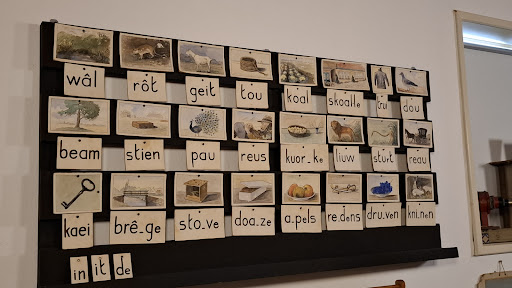 wâl rôt geit tou koal skoalle trui dou
beam stien pau reus kuor-ke liuw stu-t reau
kaei brê-ge sto-ve doa-ze a-pels re-dens dru-ven kni-nen
in it de